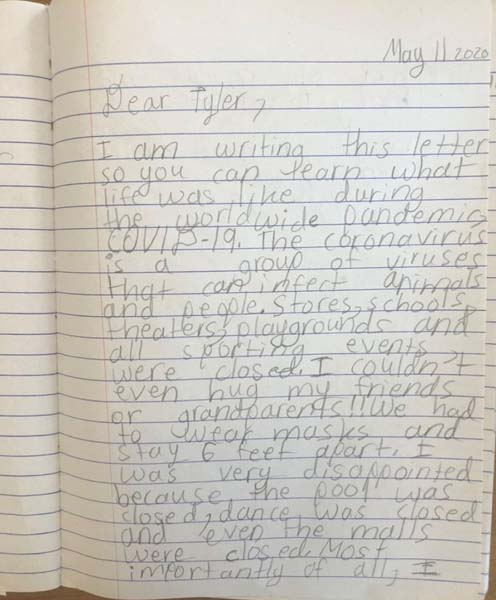 May 11 2020
Dear Tyler,
I am writing this letter
so you can learn what
life was like during
the worldwide pandemic
COVID-19. The coronavirus
is a group of viruses
that can infect animals
and people. Stores, schools,
theaters, playgrounds and
all sporting events
were closed. I couldn't
even hug my friends
or grandparents!! We had
to wear masks and
stay 6 feet apart. I
was very disappointed
because the pool was
closed, dance was closed
and even the malls
were closed. Most
importantly of all, I